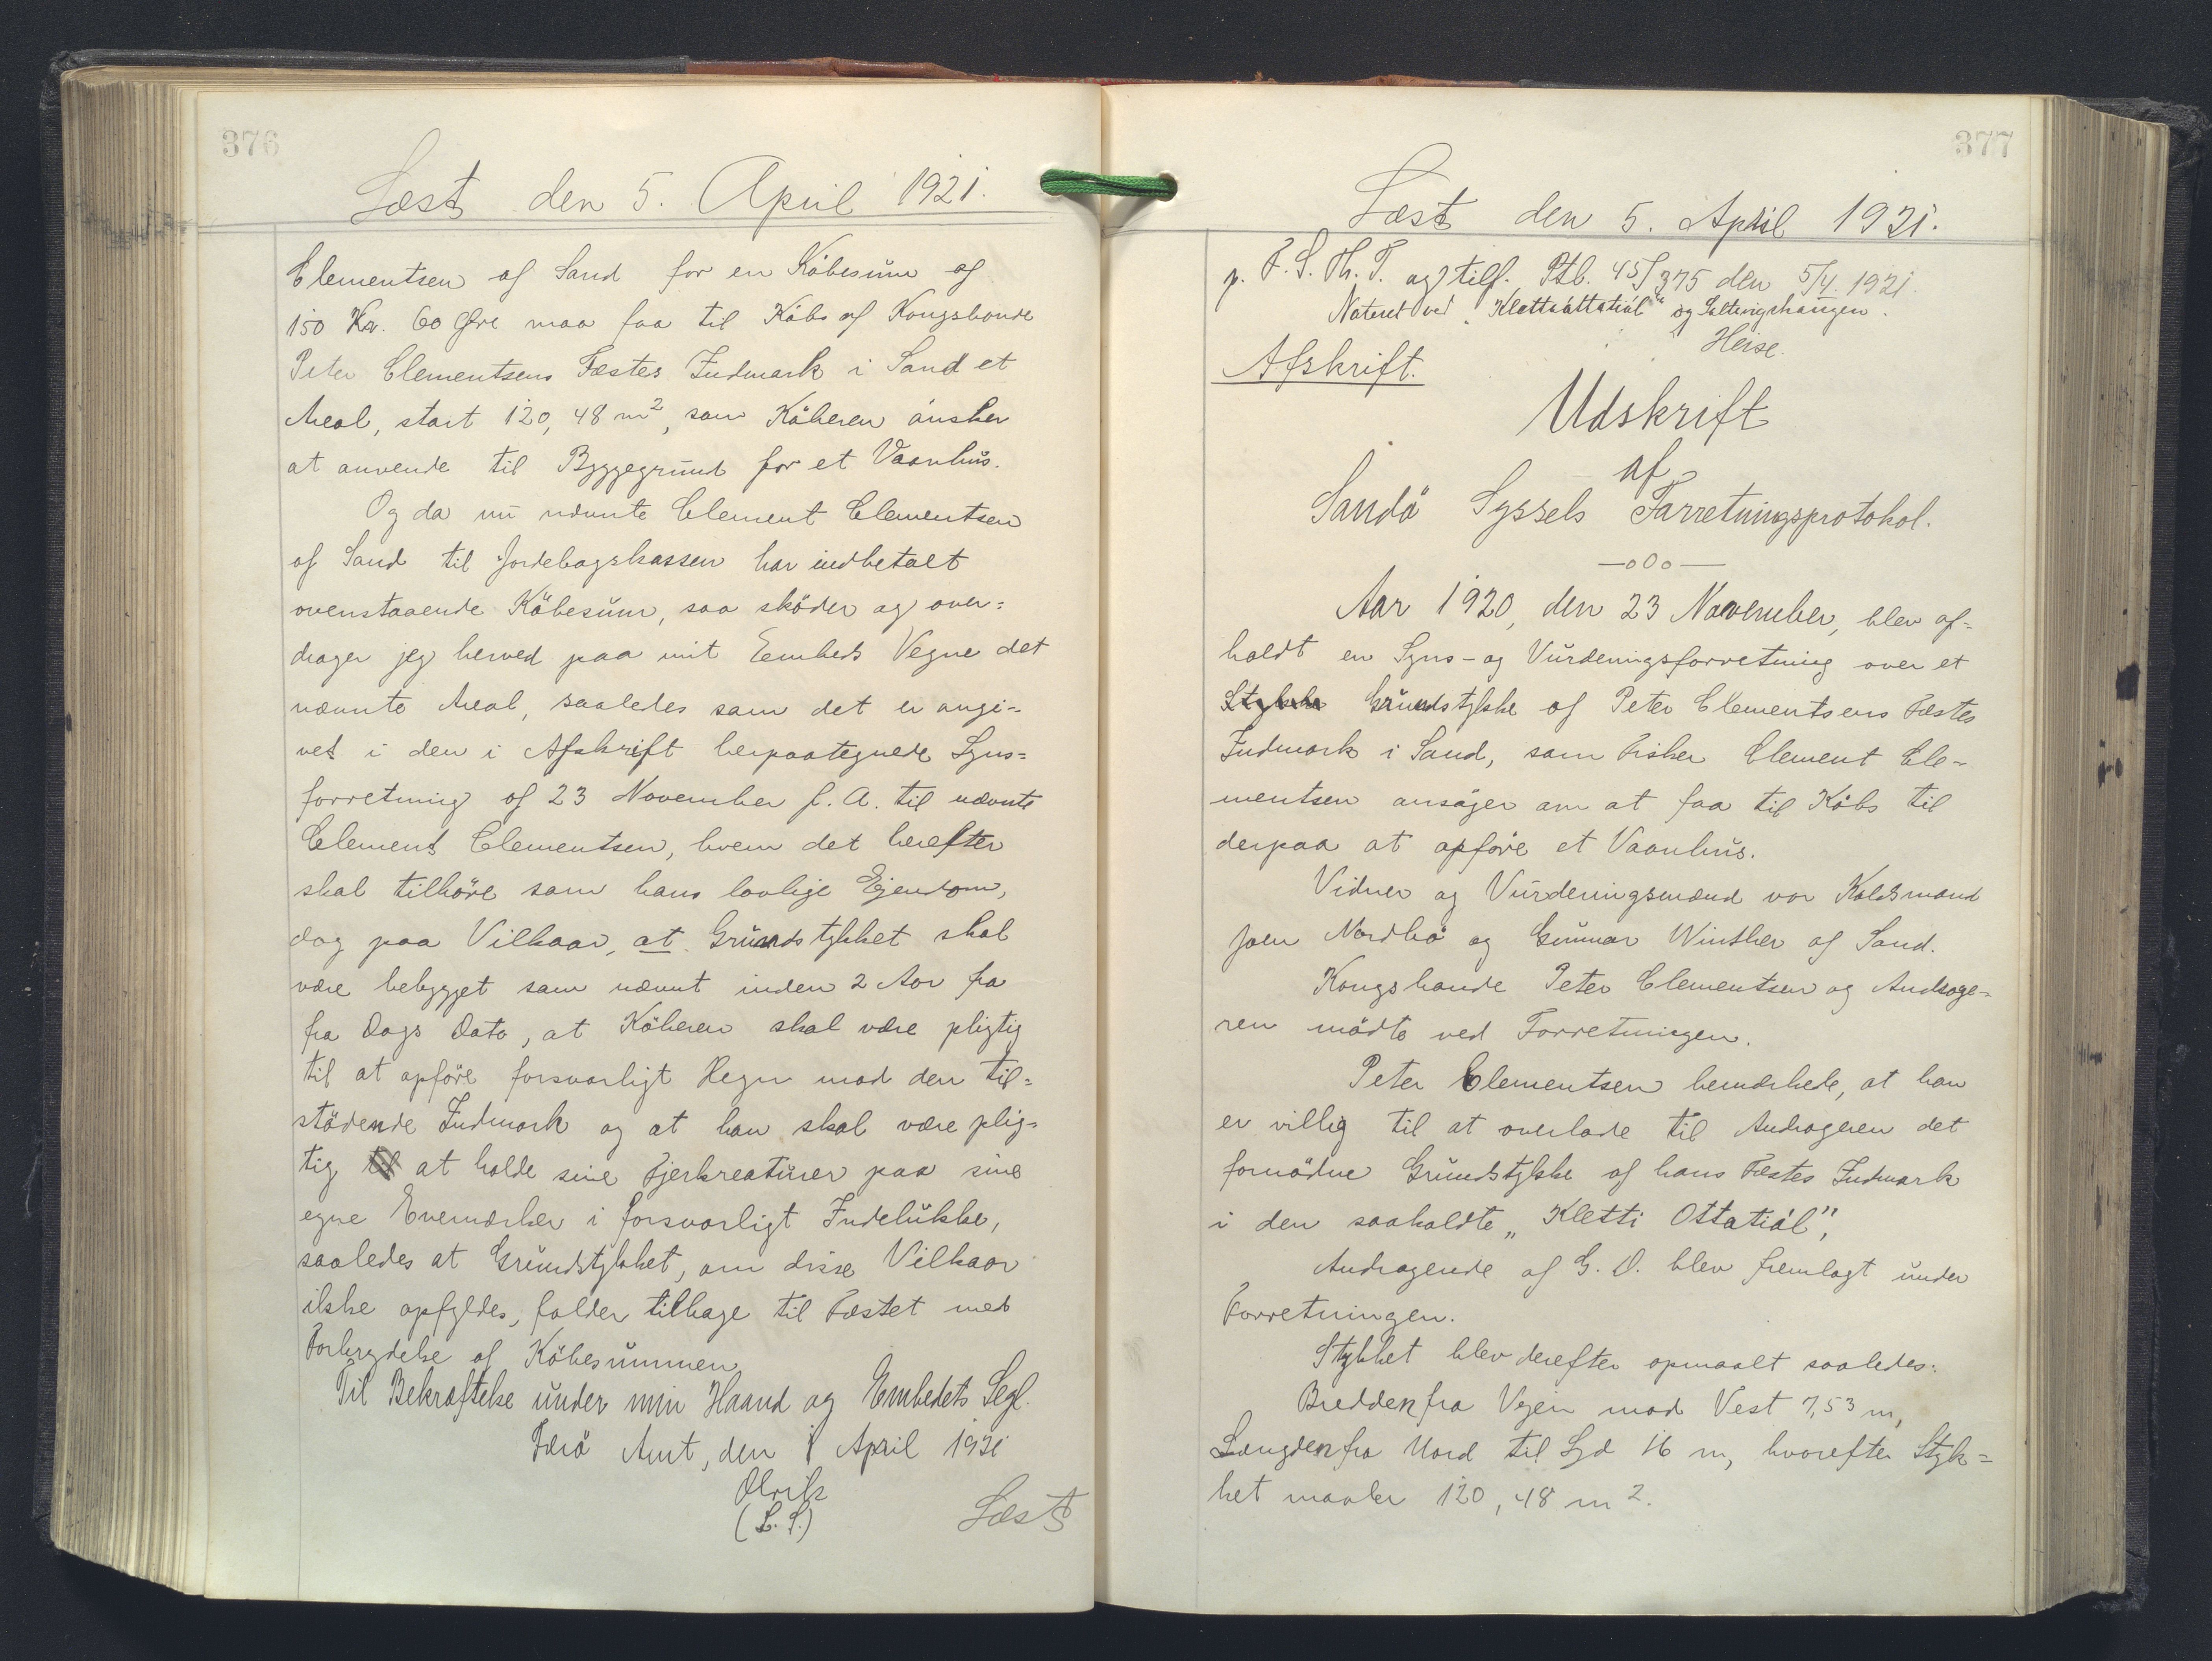 376
Læst den 5. April 1921.
Clementsen af Sand for en Købesum af
150 Kr. 60 Øre maa faa til Købs af Kongsbonde
Peter Clementsens Fæstes Indmark i Sand et
Areal, stort 120,48 m2, som Køberen ønsker
at anvende til Byggegrund for et Vaanhus.
Og da nu nævnte Clement Clementsen
af Sand til Jordebogskassen har indbetalt
ovenstaaende Købesum, saa skøder og over=
drager jeg herved paa mit Eembeds Vegne det
nævnte Areal, saaledes som det er angi-
vet i den i Afskrift herpaategnede Syns=
forretning af 23 November f. A. til nævnte
Clement Clementsen, hvem det herefter
skal tilhøre som hans lovlige Ejendom,
dog paa Vilkaar, at Grundstykket skal
være bebygget som nævnt inden 2 Aar fra
fra Dags Dato, at Køberen skal være pligtig
til at opføre forsvarligt Hegn mod den til=
stødende Indmark og at han skal være plig=
tig til at holde sine Fjerkreaturer paa sine
egne Enemærker i forsvarligt Indelukke,
saaledes at Grundstykket, om disse Vilkaar
ikke opfyldes, falder tilbage til Fæstet med
Forbrydelse af Købesummen.
Til Bekræftelse under min Haand og Embedets Segl.
Færø Amt, den 1 April 1921
Olrik
(L. S.)
Læst
377
Læst den 5. April 1921.
p. F. S. Th. T. og tilf. Ptb. 45/375 den 5/4. 1921.
Noteret ved "Klettaáttatiál" og Saltvigshaugen.
Heise.
Afskrift.
Udskrift
af
Sandø Syssels Forretningsprotokol.
—oOo—
Aar 1920, den 23 November, blev af-
holdt en Syns- og Vurderingsforretning over et
Stykke Grundstykke af Peter Clementsens Fæstes
Indmark i Sand, som Fisker Clement Cle-
mentsen ansøger om at faa til Købs til
derpaa at opføre et Vaanhus.
Vidner og Vurderingsmænd var Kaldsmand
Joen Nordbø og Gunnar Winther af Sand.
Kongsbonde Peter Clementsen og Andrage-
ren mødte ved Forretningen.
Peter Clementsen bemærkede, at han
er villig til at overlade til Andrageren det
fornødne Grundstykke af hans Fæstes Indmark
i den saakaldte "Kletti Ottatiál",
Andragende af G. D. blev fremlagt under
Forretningen.
Stykket blev derefter opmaalt saaledes:
Bredden fra Vejen mod Vest 7,53 m,
Længden fra Nord til Syd 16 m, hvorefter Styk=
ket maaler 120,48 m2.